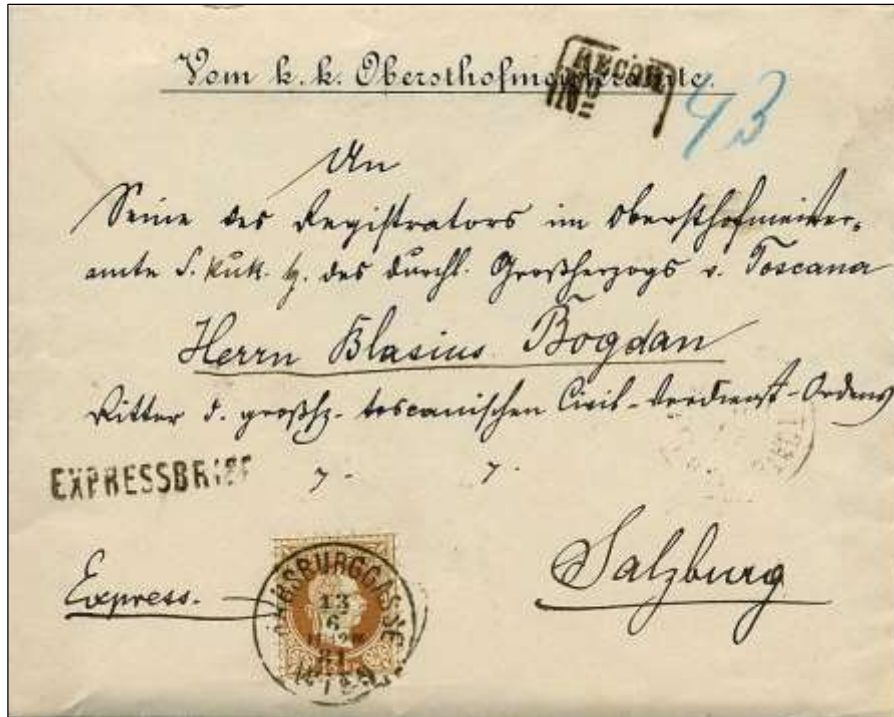 Vom k. k. Obersthofmeisteramte.
RECOM
43
An
Seine des Registrators im Obersthofmeister-
amte S. kuk. H. des durchl. Großherzogs v. Toscana
Herrn Blasius Bogdan
Ritter d. großhz. toscanischen Civil-Verdienst-Ordens
EXPRESSBRIEF
Salzburg
Express.
HABSBURGGASSE
13
6
81
WIEN